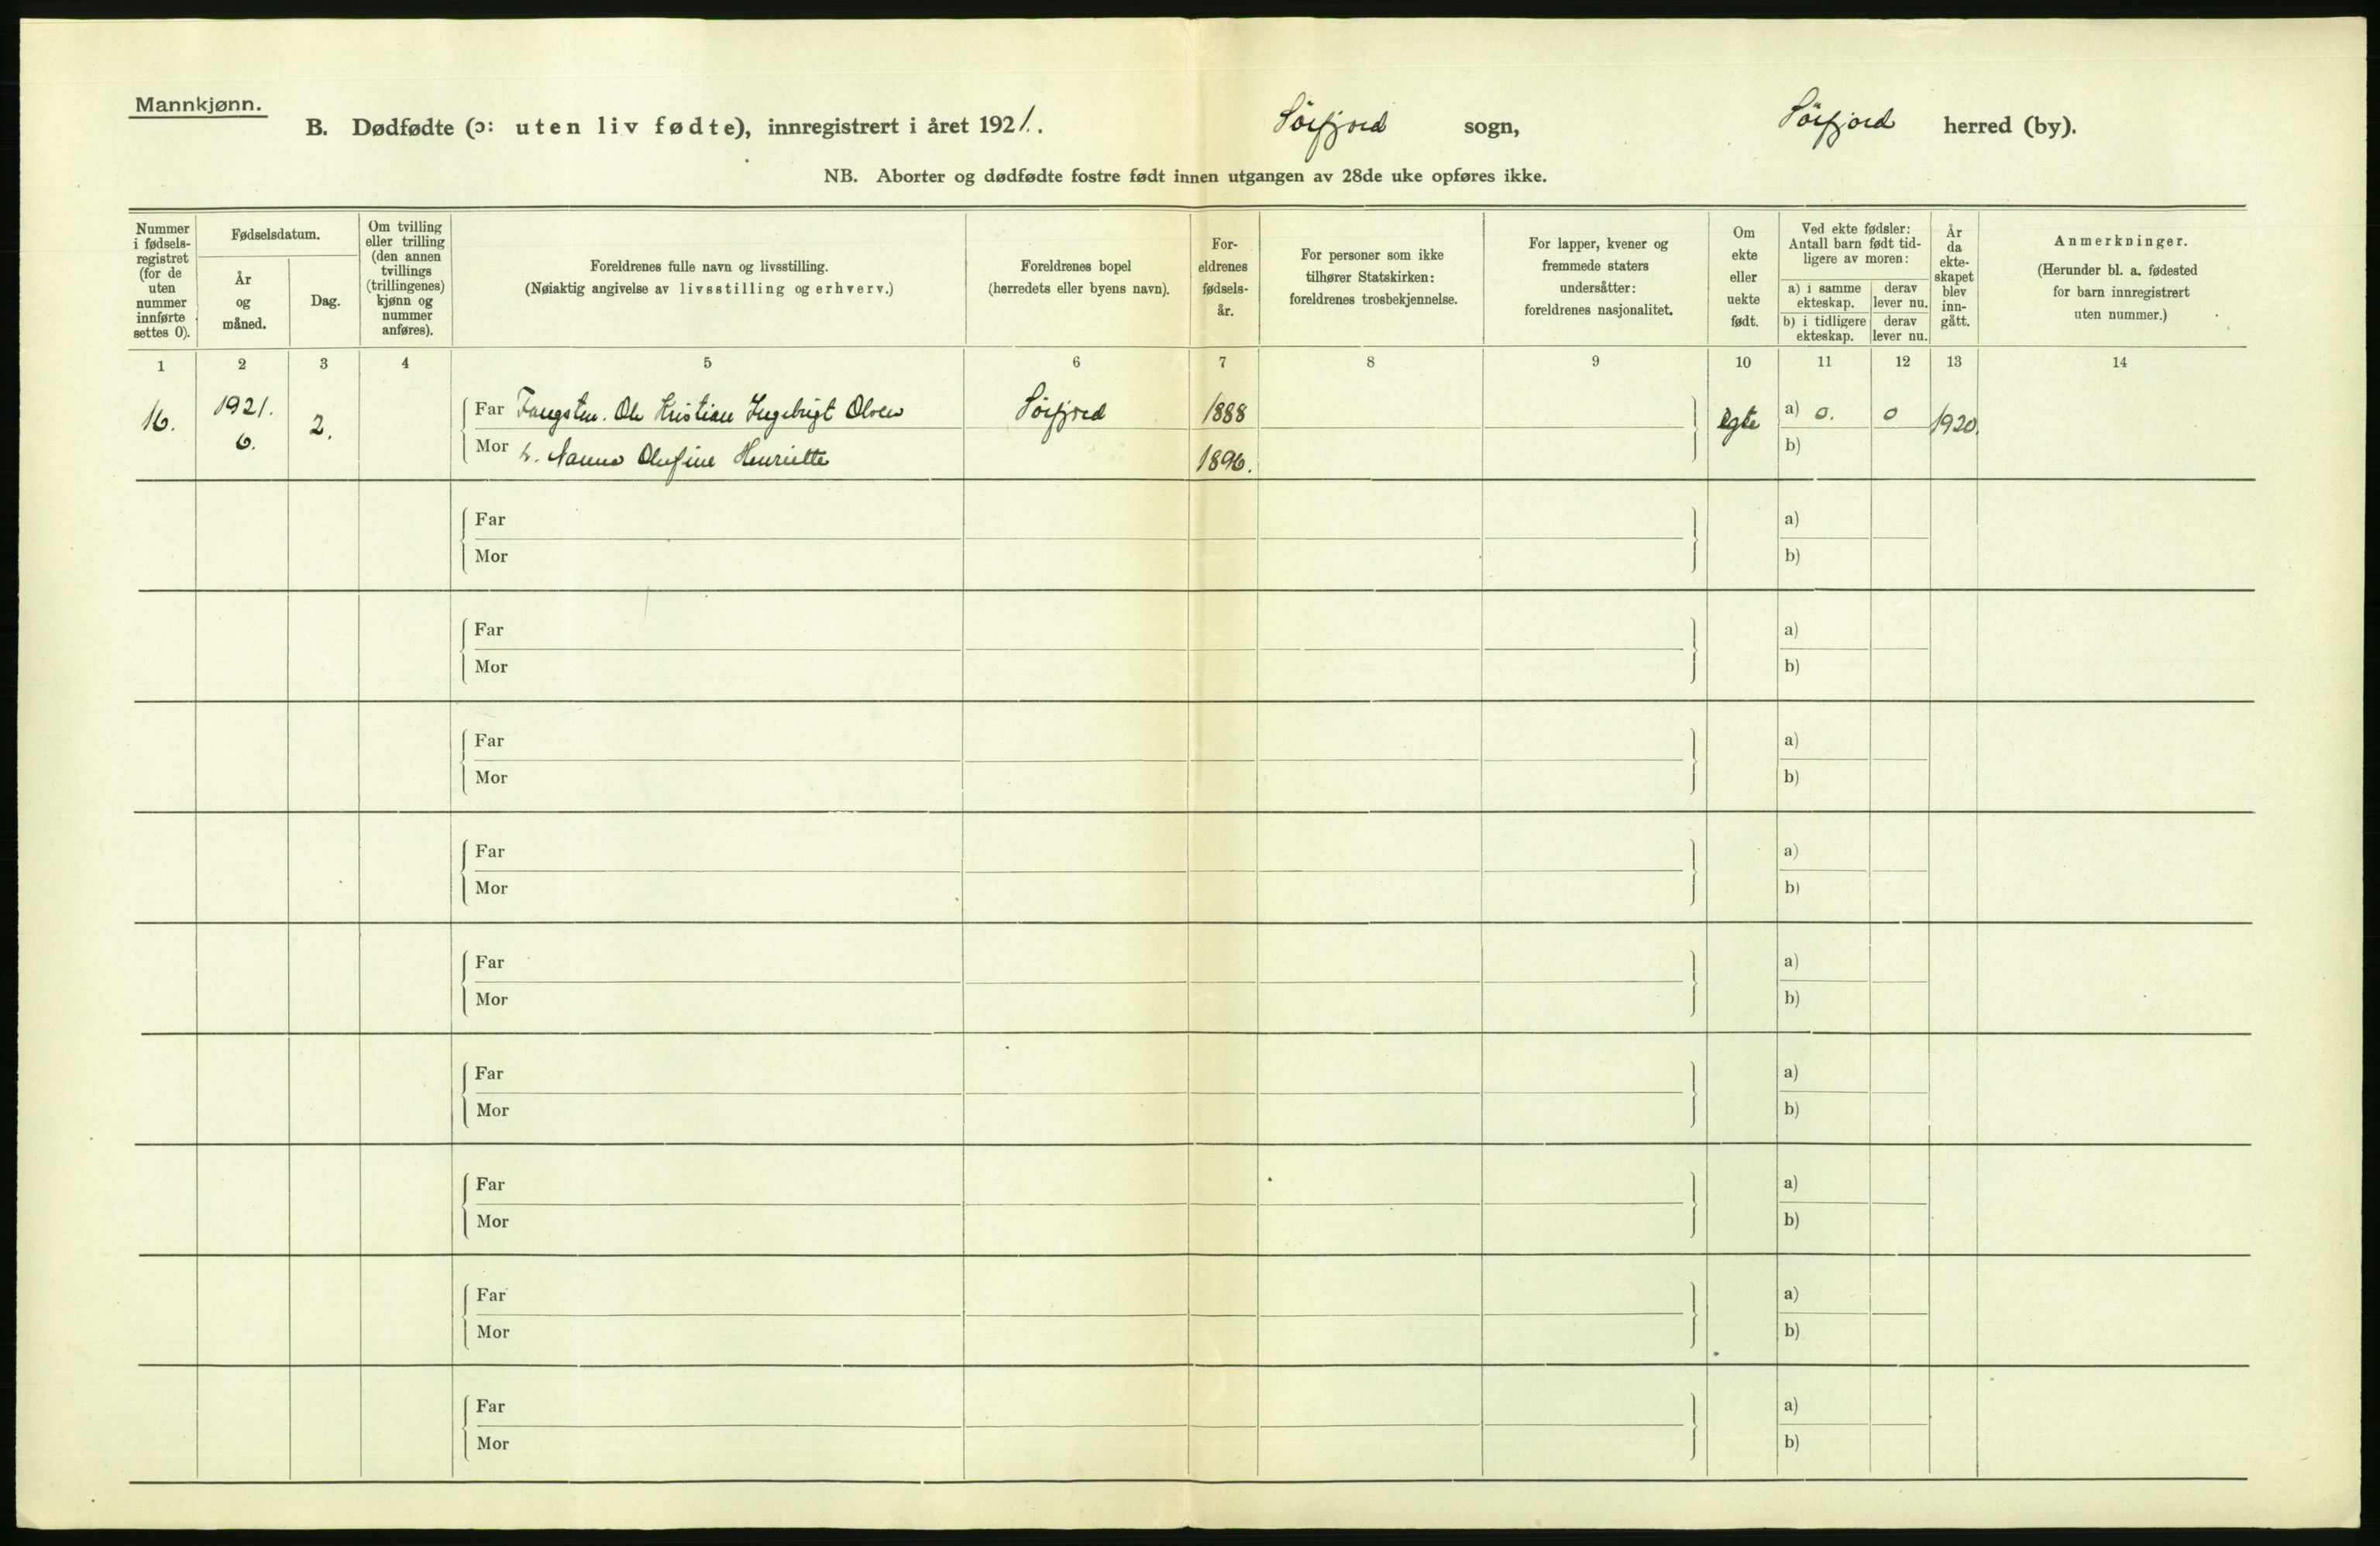 Mannkjønn.
B. Dødfødte (ɔ: uten liv fødte), innregistrert i året 1921. Sörfjord sogn, Sörfjord herred (by).
NB. Aborter og dødfødte fostre født innen utgangen av 28de uke opføres ikke.
Nummer
i fødsels-
registret
(for de
uten
nummer
innførte
settes 0).
Fødselsdatum.
År
og
måned.
Dag.
Om tvilling
eller trilling
(den annen
tvillings
(trillingenes)
kjønn og
nummer
anføres).
Foreldrenes fulle navn og livsstilling.
(Nøiaktig angivelse av livsstilling og erhverv.)
Foreldrenes bopel
(herredets eller byens navn).
For-
eldrenes
fødsels-
år.
For personer som ikke
tilhører Statskirken:
foreldrenes trosbekjennelse.
For lapper, kvener og
fremmede staters
undersåtter:
foreldrenes nasjonalitet.
Om
ekte
eller
uekte
født.
Ved ekte fødsler:
Antall barn født tid-
ligere av moren:
a) i samme
ekteskap.
derav
lever nu.
b) i tidligere
ekteskap.
derav
lever nu.
År
da
ekte-
skapet
blev
inn-
gått.
Anmerkninger.
(Herunder bl. a. fødested
for barn innregistrert
uten nummer.)
1 2 3 4 5 6 7 8 9 10 11 12 13 14
16. 1921. 6. 2. Far Fangstm. Ole Kristian Ingebrigt Olsen Sörfjord 1888 egte a) 0. 0 1920.
Mor h. Nanna Olufine Henriette 1896. b)
Far a)
Mor b)
Far a)
Mor b)
Far a)
Mor b)
Far a)
Mor b)
Far a)
Mor b)
Far a)
Mor b)
Far a)
Mor b)
Far a)
Mor b)
Far a)
Mor b)